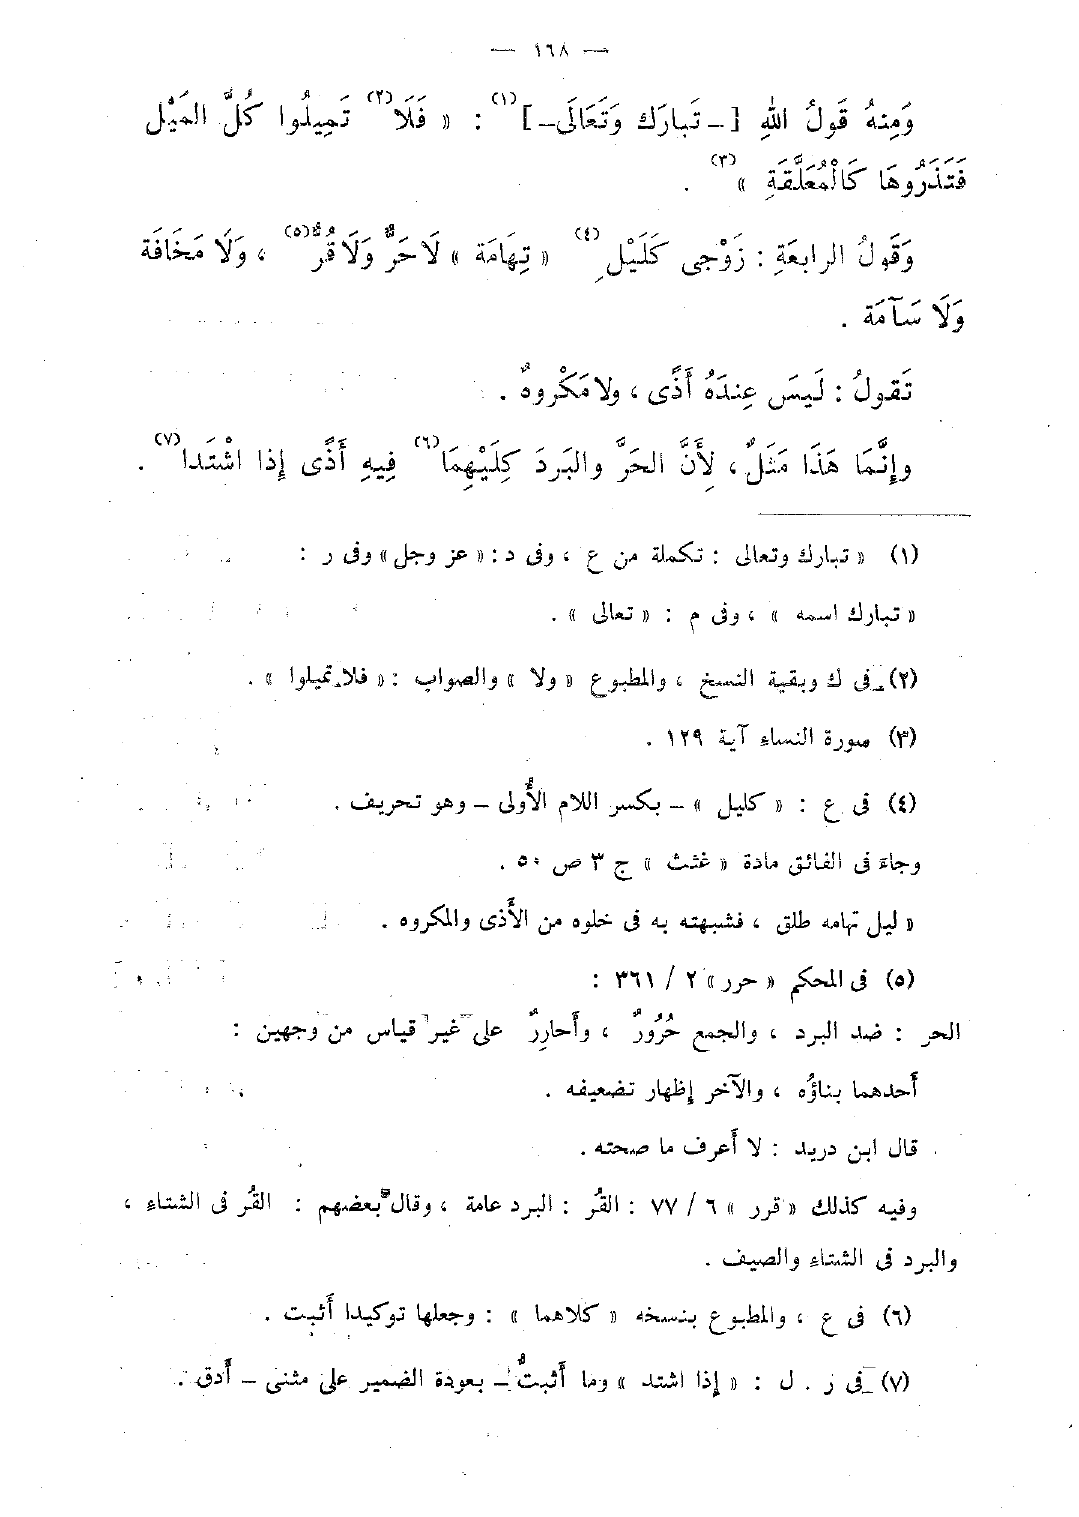 — ١٦٨ —
وَمِنهُ قَولُ اللهِ [ – تَبارَك وَتَعَالَى– ] (١) : « فَلَا (٢) تَمِيلُوا كُلَّ المَيْل
فَتَذَرُوهَا كَالْمُعَلَّقَةِ » (٣) .
وَقَولُ الرابعَةِ : زَوْجى كَلَيْلِ (٤) « تِهَامَة » لَا حَرٌّ وَلَا قُرٌّ (٥) ، وَلَا مَخَافَة
وَلَا سَآمَة .
تَقولُ : لَيسَ عِندَهُ أَذًى ، ولا مَكْروهٌ .
وإنَّمَا هَذَا مَثَلٌ ، لِأَنَّ الحَرَّ والبَردَ كِلَيْهِمَا (٦) فِيهِ أَذًى إذا اشْتَدا (٧) .
(١) « تبارك وتعالى : تكملة من ع ، وفى د : « عز وجل » وفى ر :
« تبارك اسمه » ، وفى م : « تعالى » .
(٢) فى ك وبقية النسخ ، والمطبوع « ولا » والصواب : « فلا تميلوا » .
(٣) سورة النساء آية ١٢٩ .
(٤) فى ع : « كليل » – بكسر اللام الأُولى – وهو تحريف .
وجاءَ فى الفائق مادة « غثث » ج ٣ ص ٥٠ .
« ليل تهامه طلق ، فشبهته به فى خلوه من الأَذى والمكروه .
(٥) فى المحكم « حرر » ٢ / ٣٦١ :
الحر : ضد البرد ، والجمع حُرُورٌ ، وأَحارِرٌ على غير قياس من وجهين :
أَحدهما بناؤُه ، والآخر إظهار تضعيفه .
قال ابن دريد : لا أَعرف ما صحته .
وفيه كذلك « قرر » ٦ / ٧٧ : القُر : البرد عامة ، وقال بعضهم : القُر فى الشتاءِ ،
والبرد فى الشتاءِ والصيف .
(٦) فى ع ، والمطبوع بنسخه « كلاهما » : وجعلها توكيدا أَثبت .
(٧) فى ر . ل : « إذا اشتد » وما أَثبتُّ – بعودة الضمير على مثنى – أَدق .